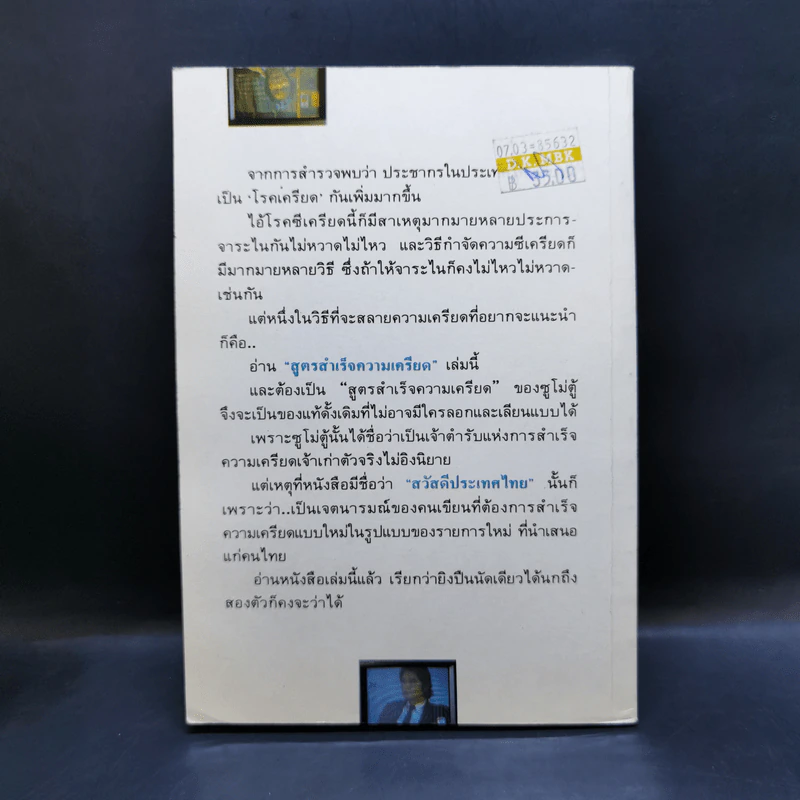 07.03-35632
D.K. MBK
฿ 55.00
จากการสำรวจพบว่า ประชากรในประเท
เป็น ‘โรคเครียด’ กันเพิ่มมากขึ้น
ไอ้โรคซีเครียดนี้ก็มีสาเหตุมากมายหลายประการ-
จาระไนกันไม่หวาดไม่ไหว และวิธีกำจัดความซีเครียดก็
มีมากมายหลายวิธี ซึ่งถ้าให้จาระไนก็คงไม่ไหวไม่หวาด-
เช่นกัน
แต่หนึ่งในวิธีที่จะสลายความเครียดที่อยากจะแนะนำ
ก็คือ..
อ่าน “สูตรสำเร็จความเครียด” เล่มนี้
และต้องเป็น “สูตรสำเร็จความเครียด” ของซูโม่ตู้
จึงจะเป็นของแท้ดั้งเดิมที่ไม่อาจมีใครลอกและเลียนแบบได้
เพราะซูโม่ตู้นั้นได้ชื่อว่าเป็นเจ้าตำรับแห่งการสำเร็จ
ความเครียดเจ้าเก่าตัวจริงไม่อิงนิยาย
แต่เหตุที่หนังสือมีชื่อว่า “สวัสดีประเทศไทย” นั้นก็
เพราะว่า..เป็นเจตนารมณ์ของคนเขียนที่ต้องการสำเร็จ
ความเครียดแบบใหม่ในรูปแบบของรายการใหม่ ที่นำเสนอ
แก่คนไทย
อ่านหนังสือเล่มนี้แล้ว เรียกว่ายิงปืนนัดเดียวได้นกถึง
สองตัวก็คงจะว่าได้